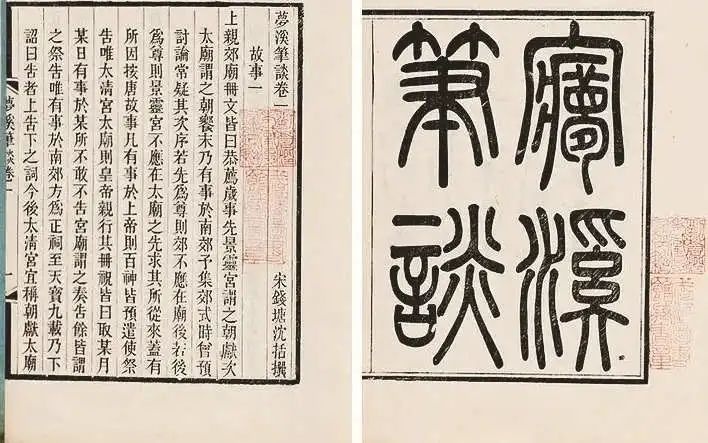 夢溪
筆談
夢溪筆談卷一 宋錢塘沈括撰
故事一
上親郊廟冊文皆曰恭薦歲事先景靈宮謂之朝獻次
太廟謂之朝饗末乃有事於南郊予集郊式時曾預
討論常疑其次序若先爲尊則郊不應在廟後若後
爲尊則景靈宮不應在太廟之先求其所從來蓋有
所因按唐故事凡有事於上帝則百神皆預遣使祭
告唯太清宮太廟則皇帝親行其冊祝皆曰取某月
某日有事於某所不敢不告宮廟謂之奏告餘皆謂
之祭告唯有事於南郊方爲正祠至天寶九載乃下
詔曰告者上告下之詞今後太清宮宜稱朝獻太廟
夢溪筆談卷一 一